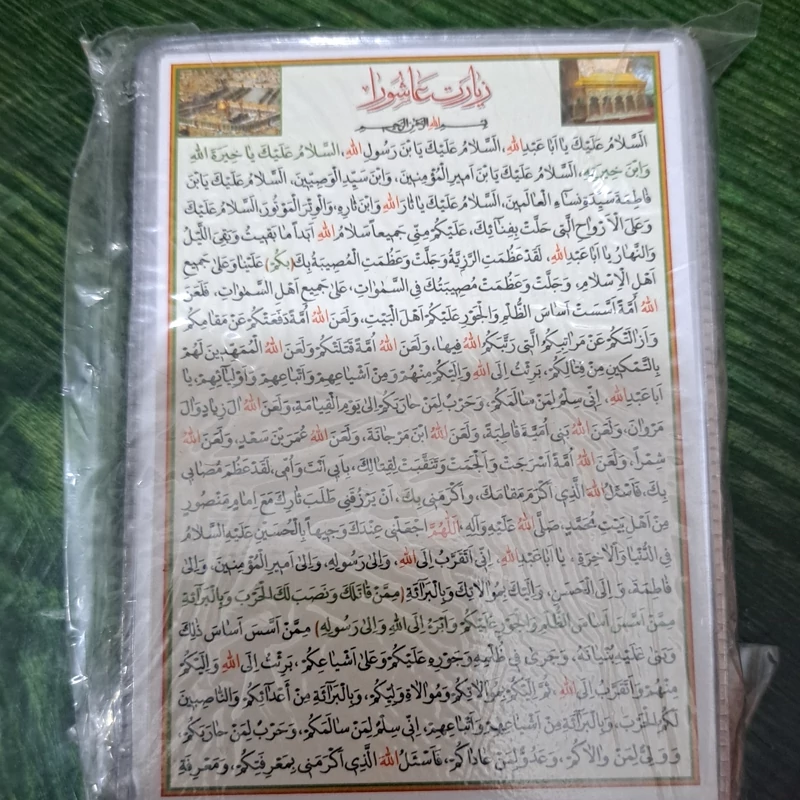 زیارت عاشورا
بسم الله الرحمن الرحیم
اَلسَّلامُ عَلَيْكَ يا اَبا عَبْدِ اللهِ، اَلسَّلامُ عَلَيْكَ يَا بْنَ رَسُولِ اللهِ، اَلسَّلامُ عَلَيْكَ يا خِيَرَةَ اللهِ
وَابْنَ خِيَرَتِهِ، اَلسَّلامُ عَلَيْكَ يَا بْنَ اَميرِ الْمُؤْمِنينَ، وَابْنَ سَيِّدِ الْوَصِيّينَ، اَلسَّلامُ عَلَيْكَ يَابْنَ
فاطِمَةَ سَيِّدَةِ نِساءِ الْعالَمينَ، اَلسَّلامُ عَلَيْكَ يا ثارَ اللهِ وَابْنَ ثارِهِ، وَالْوِتْرَ الْمَوْتُورَ، اَلسَّلامُ عَلَيْكَ
وَعَلَى الْاَرْواحِ الَّتى حَلَّتْ بِفِنائِكَ، عَلَيْكُمْ مِنّى جَميعاً سَلامُ اللهِ اَبَداً ما بَقيتُ وَبَقِىَ اللَّيْلُ
وَالنَّهارُ يا اَبا عَبْدِ اللهِ، لَقَدْ عَظُمَتِ الرَّزِيَّةُ وَجَلَّتْ وَعَظُمَتِ الْمُصيبَةُ بِكَ (بِكُمْ) عَلَيْنا وَعَلى جَميعِ
اَهْلِ الْاِسْلامِ، وَجَلَّتْ وَعَظُمَتْ مُصيبَتُكَ فِى السَّمواتِ، عَلى جَميعِ اَهْلِ السَّمواتِ، فَلَعَنَ
اللهُ اُمَّةً اَسَّسَتْ اَساسَ الظُّلْمِ وَالْجَوْرِ عَلَيْكُمْ اَهْلَ الْبَيْتِ، وَلَعَنَ اللهُ اُمَّةً دَفَعَتْكُمْ عَنْ مَقامِكُمْ
وَاَزالَتْكُمْ عَنْ مَراتِبِكُمُ الَّتى رَتَّبَكُمُ اللهُ فيها، وَلَعَنَ اللهُ اُمَّةً قَتَلَتْكُمْ وَلَعَنَ اللهُ الْمُمَهِّدينَ لَهُمْ
بِالتَّمْكينِ مِنْ قِتالِكُمْ، بَرِئْتُ اِلَى اللهِ وَاِلَيْكُمْ مِنْهُمْ وَمِنْ اَشْياعِهِمْ وَاَتْباعِهِمْ وَاَوْلِيائِهِمْ، يا
اَبا عَبْدِ اللهِ، اِنّى سِلْمٌ لِمَنْ سالَمَكُمْ، وَحَرْبٌ لِمَنْ حارَبَكُمْ اِلى يَوْمِ الْقِيامَةِ، وَلَعَنَ اللهُ آلَ زِيادٍ وَآلَ
مَرْوانَ، وَلَعَنَ اللهُ بَنى اُمَيَّةَ قاطِبَةً، وَلَعَنَ اللهُ ابْنَ مَرْجانَةَ، وَلَعَنَ اللهُ عُمَرَ بْنَ سَعْدٍ، وَلَعَنَ اللهُ
شِمْراً، وَلَعَنَ اللهُ اُمَّةً اَسْرَجَتْ وَاَلْجَمَتْ وَتَنَقَّبَتْ لِقِتالِكَ، بِاَبى اَنْتَ وَاُمّى، لَقَدْ عَظُمَ مُصابى
بِكَ، فَاَسْئَلُ اللهَ الَّذى اَكْرَمَ مَقامَكَ، وَاَكْرَمَنى بِكَ، اَنْ يَرْزُقَنى طَلَبَ ثارِكَ مَعَ اِمامٍ مَنْصُورٍ
مِنْ اَهْلِ بَيْتِ مُحَمَّدٍ، صَلَّى اللهُ عَلَيْهِ وَآلِهِ، اَللّهُمَّ اجْعَلْنى عِنْدَكَ وَجيهاً بِالْحُسَيْنِ عَلَيْهِ السَّلامُ
فِى الدُّنْيا وَالْاخِرَةِ، يا اَبا عَبْدِ اللهِ، اِنّى اَتَقَرَّبُ اِلَى اللهِ، وَاِلى رَسُولِهِ، وَاِلى اَميرِ الْمُؤْمِنينَ، وَاِلى
فاطِمَةَ، وَ اِلَى الْحَسَنِ، وَاِلَيْكَ بِمُوالاتِكَ وَبِالْبَرائَةِ (مِمَّنْ قاتَلَكَ وَنَصَبَ لَكَ الْحَرْبَ وَبِالْبَرائَةِ
مِمَّنْ اَسَّسَ اَساسَ الظُّلْمِ وَالْجَوْرِ عَلَيْكُمْ وَاَبْرَءُ اِلَى اللهِ وَاِلى رَسُولِهِ) مِمَّنْ اَسَّسَ اَساسَ ذلِكَ
وَبَنى عَلَيْهِ بُنْيانَهُ، وَجَرى فى ظُلْمِهِ وَجَوْرِهِ عَلَيْكُمْ وَعَلى اَشْياعِكُمْ، بَرِئْتُ اِلَى اللهِ وَاِلَيْكُمْ
مِنْهُمْ وَاَتَقَرَّبُ اِلَى اللهِ، ثُمَّ اِلَيْكُمْ بِمُوالاتِكُمْ وَمُوالاةِ وَلِيِّكُمْ، وَبِالْبَرائَةِ مِنْ اَعْدائِكُمْ وَالنّاصِبينَ
لَكُمُ الْحَرْبَ، وَبِالْبَرائَةِ مِنْ اَشْياعِهِمْ وَاَتْباعِهِمْ، اِنّى سِلْمٌ لِمَنْ سالَمَكُمْ، وَحَرْبٌ لِمَنْ حارَبَكُمْ،
وَ وَلِىٌّ لِمَنْ والاكُمْ، وَعَدُوٌّ لِمَنْ عاداكُمْ، فَاَسْئَلُ اللهَ الَّذى اَكْرَمَنى بِمَعْرِفَتِكُمْ، وَمَعْرِفَةِ